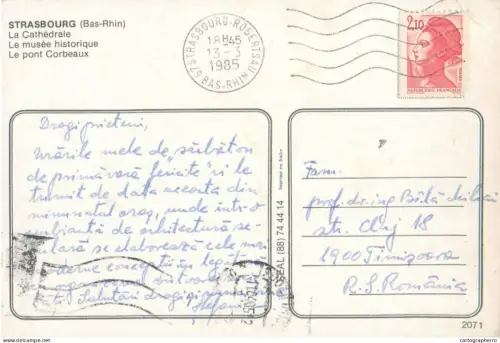 STRASBOURG (Bas-Rhin)
La Cathédrale
Le musée historique
Le pont Corbeaux
67 STRASBOURG-ROBERTSAU
18H45
13-3
1985
BAS-RHIN
2,10
REPUBLIQUE FRANÇAISE
Dragi prieteni,
Urările mele de sărbători
de primăvară "fericite" vi le
trimit de data aceasta din
minunatul oraș, unde într-o
ambianță de arhitectură se-
culară se elaborează cele mai
moderne concepții în legătu
Salutări dragi
Ștefan
(88) 74.44.14
Fam.
prof. dr. ing Bălă
str. Cluj 18
1900 Timișoara
R. S. România
2071
cartographer.net